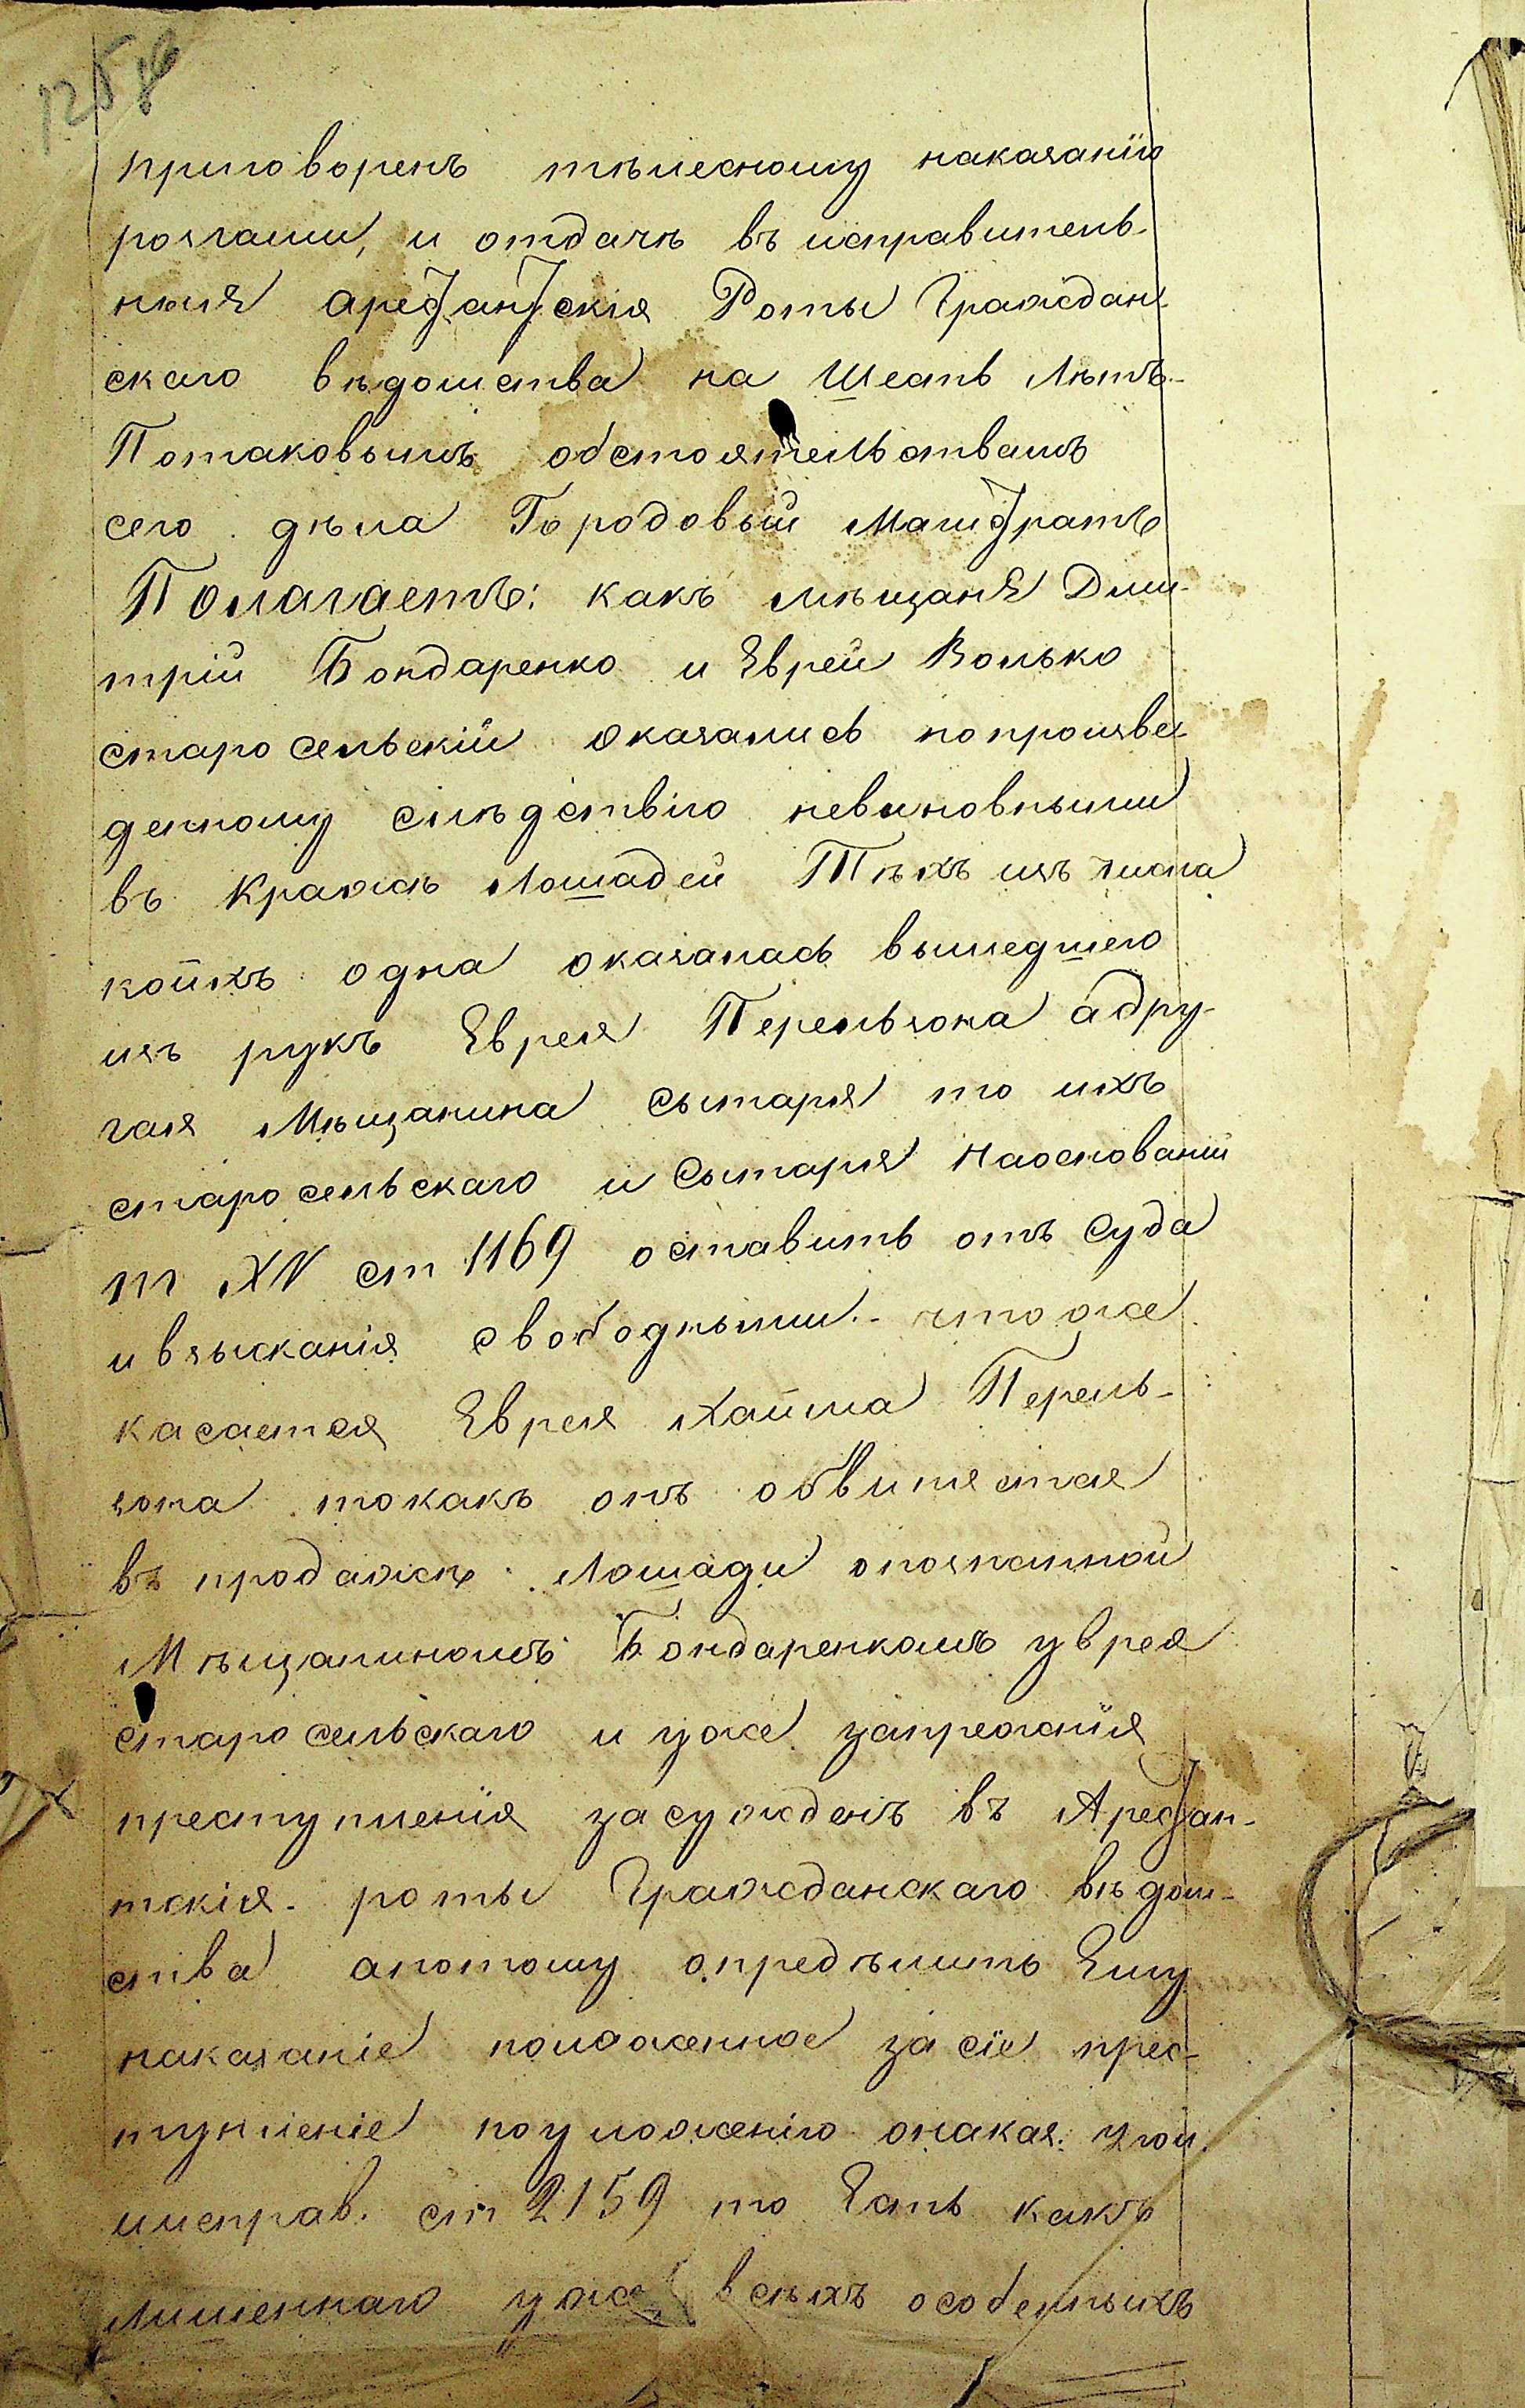 приговоренъ тѣлесному наказанію
розгами, и отдачѣ въ исправитель-
ныя арестантскія Роты Граждан-
скаго вѣдомства на Шесть Лѣтъ-
Потаковымъ обстоятельствамъ
сего дѣла Городовый Магистратъ
Полагаетъ: какъ мѣщанѣ Дми-
трій Бондаренко и Еврей Волько
старосельскій оказались попроизве-
денному слѣдствію невиновными
въ Кражѣ Лошадей Тѣхъ изъ числа
коихъ одна оказалась вышедшею
изъ рукъ Еврея Перельзона адру-
гая Мѣщанина Сытаря то ихъ
старосельскаго и Сытаря Наоснованіи
т XV ст 1169 оставить отъ Суда
и взысканія свободными.- чтоже
касается Еврея Хаима Перель-
зона токакъ онъ обвиняется
въ продажѣ Лошади опознанной
Мѣщаниномъ Бондаренкомъ уврея
старосельскаго и уже запрежнія
преступленія засужденъ въ Арестан-
тскія роты Гражданскаго вѣдом-
ства апотому опредѣлить Ему
наказаніе положенное за сіе прес-
тупленіе поуложенію онаказ: угол.
иисправ. ст 2159 то Есть какъ
лишеннаго уже всѣхъ особенныхъ